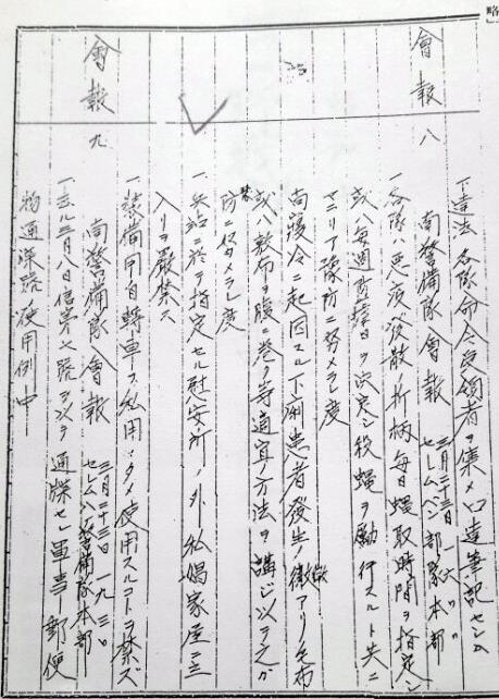 略
會報 八
下達法 各隊命令受領者ヲ集メ口達筆記セシム
南警備隊會報 三月二十三日 一六〃〃 セレムバン部隊本部
一、各隊ハ悪疫發散ノ折柄毎日蠅取時間ヲ指定シ
或ハ毎週 ヲ決定シ殺蠅ヲ勵行スルト共ニ
マラリア豫防ニ努メラレ度
尚寝冷ニ起因スル下痢患者發生ノ徴アリ毛布
或ハ軟布ヲ腹ニ巻ク等適宜ノ方法ヲ講ジ以ヲ之ガ
防 ニ メラレ度
一、兵站ニ於テ指定セル慰安所ノ外私娼家屋ニ立
入リヲ嚴禁ス
一、装備用自轉車ヲ私用ノタメ使用スルコトヲ禁ズ
會報 九
南警備隊會報 三月二十三日 一九、三〇 セレムバン警備隊本部
一、 三月八日信 號ヲ以テ通牒セシ軍 郵便
物通 號使用例中